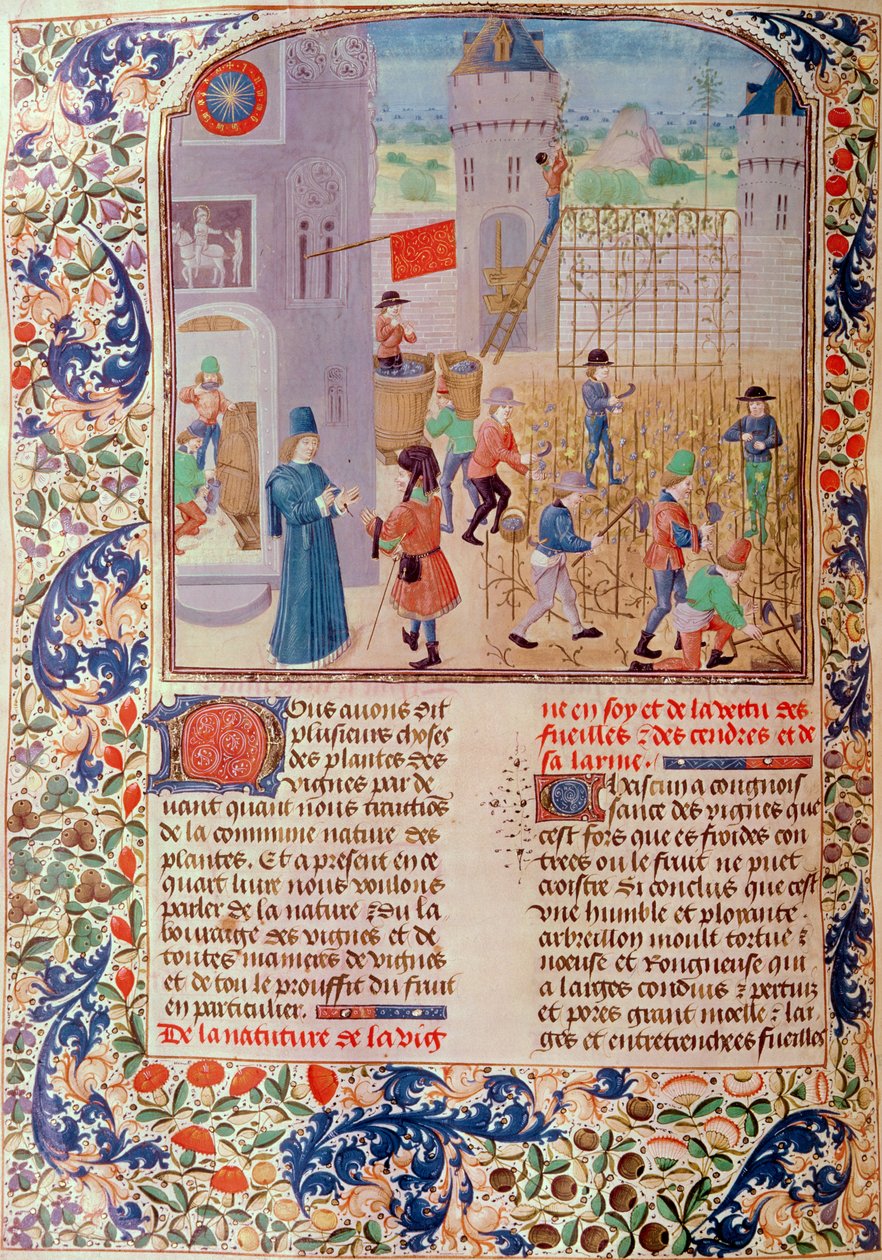 Nous auons dit
plusieurs choses
des plantes des
vignes par de
uant quant nous traictiōs
de la commune nature des
plantes. Et a present en ce
quart liure nous voulons
parler de la nature ⁊ du la
bouraige des vignes et de
toutes manieres de vignes
et de tou le prouffit du fruit
en particulier.
De la natuture de la vig
ne en soy et de la vertu des
fueilles ⁊ des cendres et de
sa larme.
Chascun a congnois
sance des vignes que
cest fors que es froides con
trees ou le fruit ne puet
croistre Si conclus que cest
vne humble et ployante
arbreillon moult tortue ⁊
noeuse et Rongneuse qui
a larges conduis ⁊ pertuiz
et pores grant moelle ⁊ lar
ges et entretrenchees fueilles